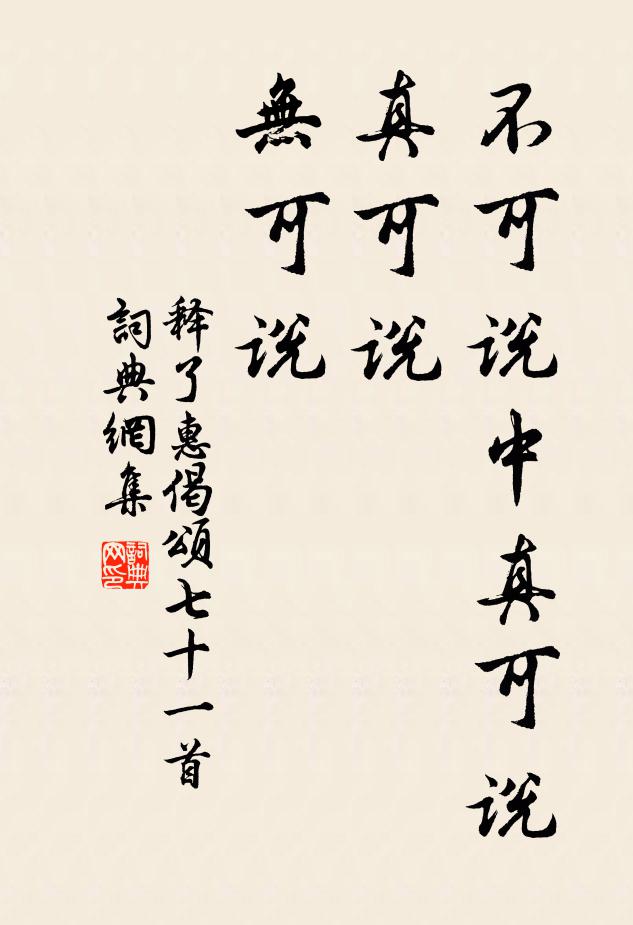 不可说中真可说
真可说
無可说
释了惠偈頌七十一首
詞典網集
詞典网印